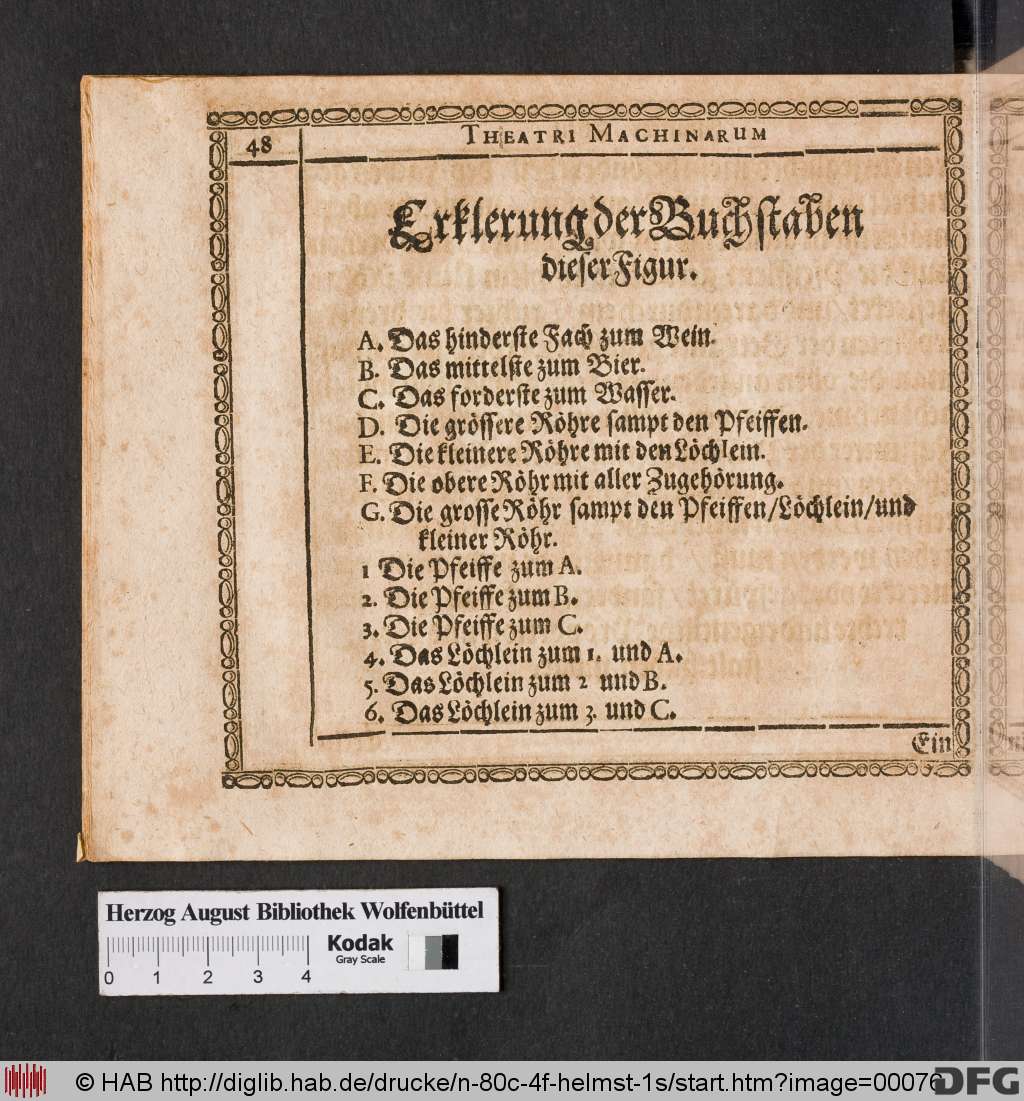 48
THEATRI MACHINARUM
Erklerung der Buchstaben
dieser Figur.
A. Das hinderste Fach zum Wein.
B. Das mittelste zum Bier.
C. Das forderste zum Wasser.
D. Die grössere Röhre sampt den Pfeiffen.
E. Die kleinere Röhre mit den Löchlein.
F. Die obere Röhr mit aller Zugehörung.
G. Die grosse Röhr sampt den Pfeiffen/Löchlein/und
kleiner Röhr.
1 Die Pfeiffe zum A.
2. Die Pfeiffe zum B.
3. Die Pfeiffe zum C.
4. Das Löchlein zum 1. und A.
5. Das Löchlein zum 2 und B.
6. Das Löchlein zum 3. und C.
Ein
Herzog August Bibliothek Wolfenbüttel
Kodak
Gray Scale
0 1 2 3 4
© HAB http://diglib.hab.de/drucke/n-80c-4f-helmst-1s/start.htm?image=00076
DFG